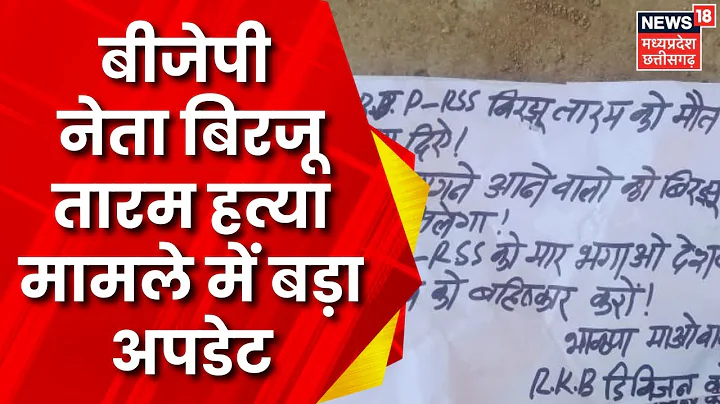 बीजेपी
नेता बिरजू
तारम हत्या
मामले में बड़ा
अपडेट
NEWS 18
मध्यप्रदेश
छत्तीसगढ़
P-RSS बिरझू तारम को मौत
दिऐ!
आने वालो को बिरझू
-RSS को मार भगाओ
को बहिष्कार करो!
भाकपा
R.K.B डिविजन